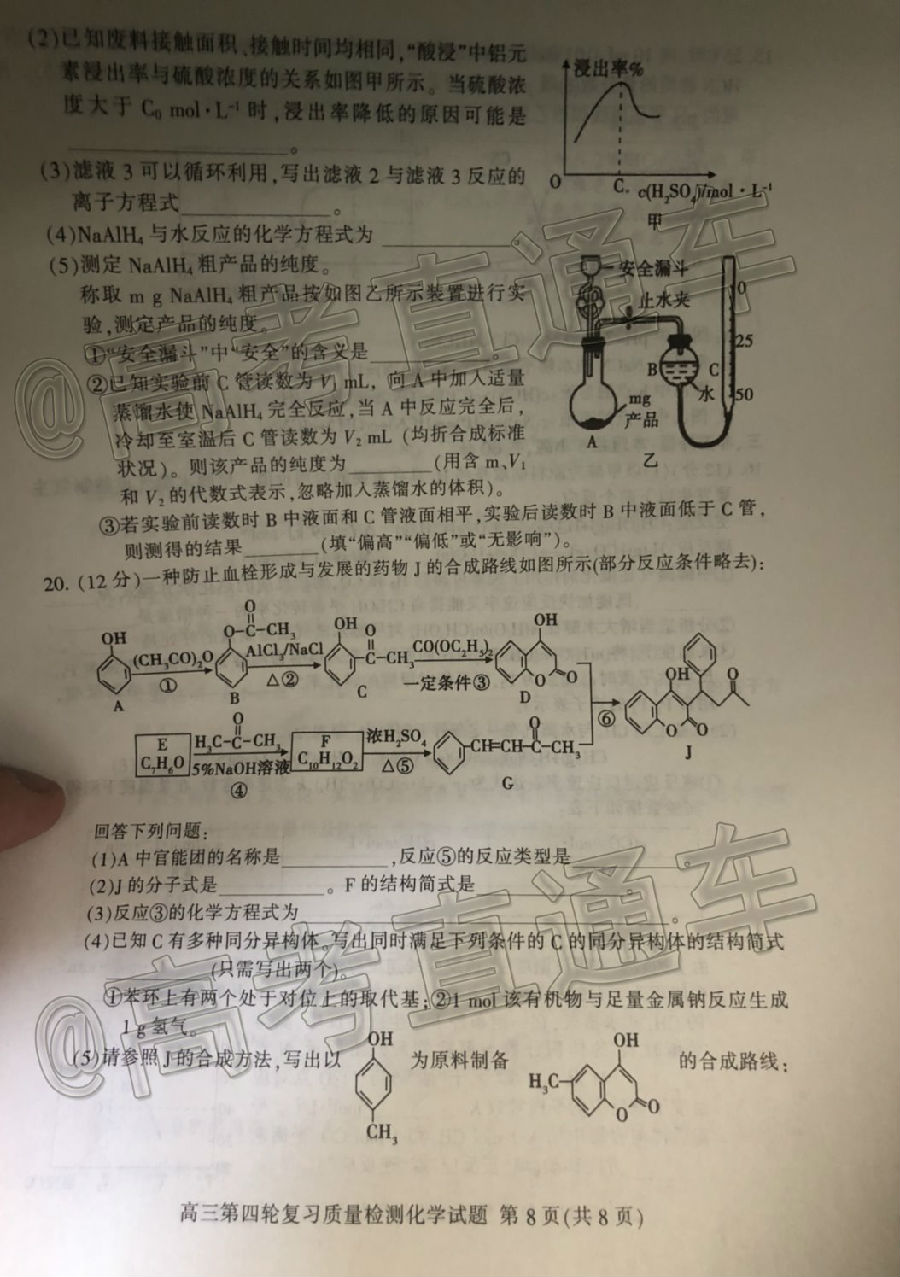 (2)已知废料接触面积、接触时间均相同,“酸浸”中铝元
素浸出率与硫酸浓度的关系如图甲所示。当硫酸浓
度大于 C₀ mol·L⁻¹ 时,浸出率降低的原因可能是
________________。
浸出率%
0
C。
c(H₂SO₄)/mol·L⁻¹
甲
(3)滤液 3 可以循环利用,写出滤液 2 与滤液 3 反应的
离子方程式____________。
(4)NaAlH₄ 与水反应的化学方程式为 __________
(5)测定 NaAlH₄ 粗产品的纯度。
称取 m g NaAlH₄ 粗产品按如图乙所示装置进行实
验,测定产品的纯度。
①“安全漏斗”中“安全”的含义是__________
②已知实验前 C 管读数为 V₁ mL, 向 A 中加入适量
蒸馏水使 NaAlH₄ 完全反应,当 A 中反应完全后,
冷却至室温后 C 管读数为 V₂ mL (均折合成标准
状况)。则该产品的纯度为_______(用含 m、V₁
和 V₂ 的代数式表示,忽略加入蒸馏水的体积)。
安全漏斗
止水夹
0
25
50
B
C
水
mg
产品
A
乙
③若实验前读数时 B 中液面和 C 管液面相平,实验后读数时 B 中液面低于 C 管,
则测得的结果______(填“偏高”“偏低”或“无影响”)。
20. (12 分)一种防止血栓形成与发展的药物 J 的合成路线如图所示(部分反应条件略去):
OH
A
(CH₃CO)₂O
①
O
O-C-CH₃
B
AlCl₃/NaCl
△②
OH
O
C-CH₃
C
CO(OC₂H₅)₂
一定条件③
OH
O
O
D
⑥
OH
O
O
O
J
E
C₇H₆O
O
H₃C-C-CH₃
5%NaOH溶液
④
F
C₁₀H₁₂O₂
浓H₂SO₄
△⑤
O
CH=CH-C-CH₃
G
回答下列问题:
(1)A 中官能团的名称是_________,反应⑤的反应类型是__________
(2)J 的分子式是_________。F 的结构简式是__________
(3)反应③的化学方程式为____________________.
(4)已知 C 有多种同分异构体。写出同时满足下列条件的 C 的同分异构体的结构简式
__________(只需写出两个)。
①苯环上有两个处于对位上的取代基;②1 mol 该有机物与足量金属钠反应生成
1 g 氢气。
(5)请参照 J 的合成方法,写出以
OH
CH₃
为原料制备
OH
H₃C
O
O
的合成路线:
高三第四轮复习质量检测化学试题 第 8 页(共 8 页)
@高考直通车
@高考直通车